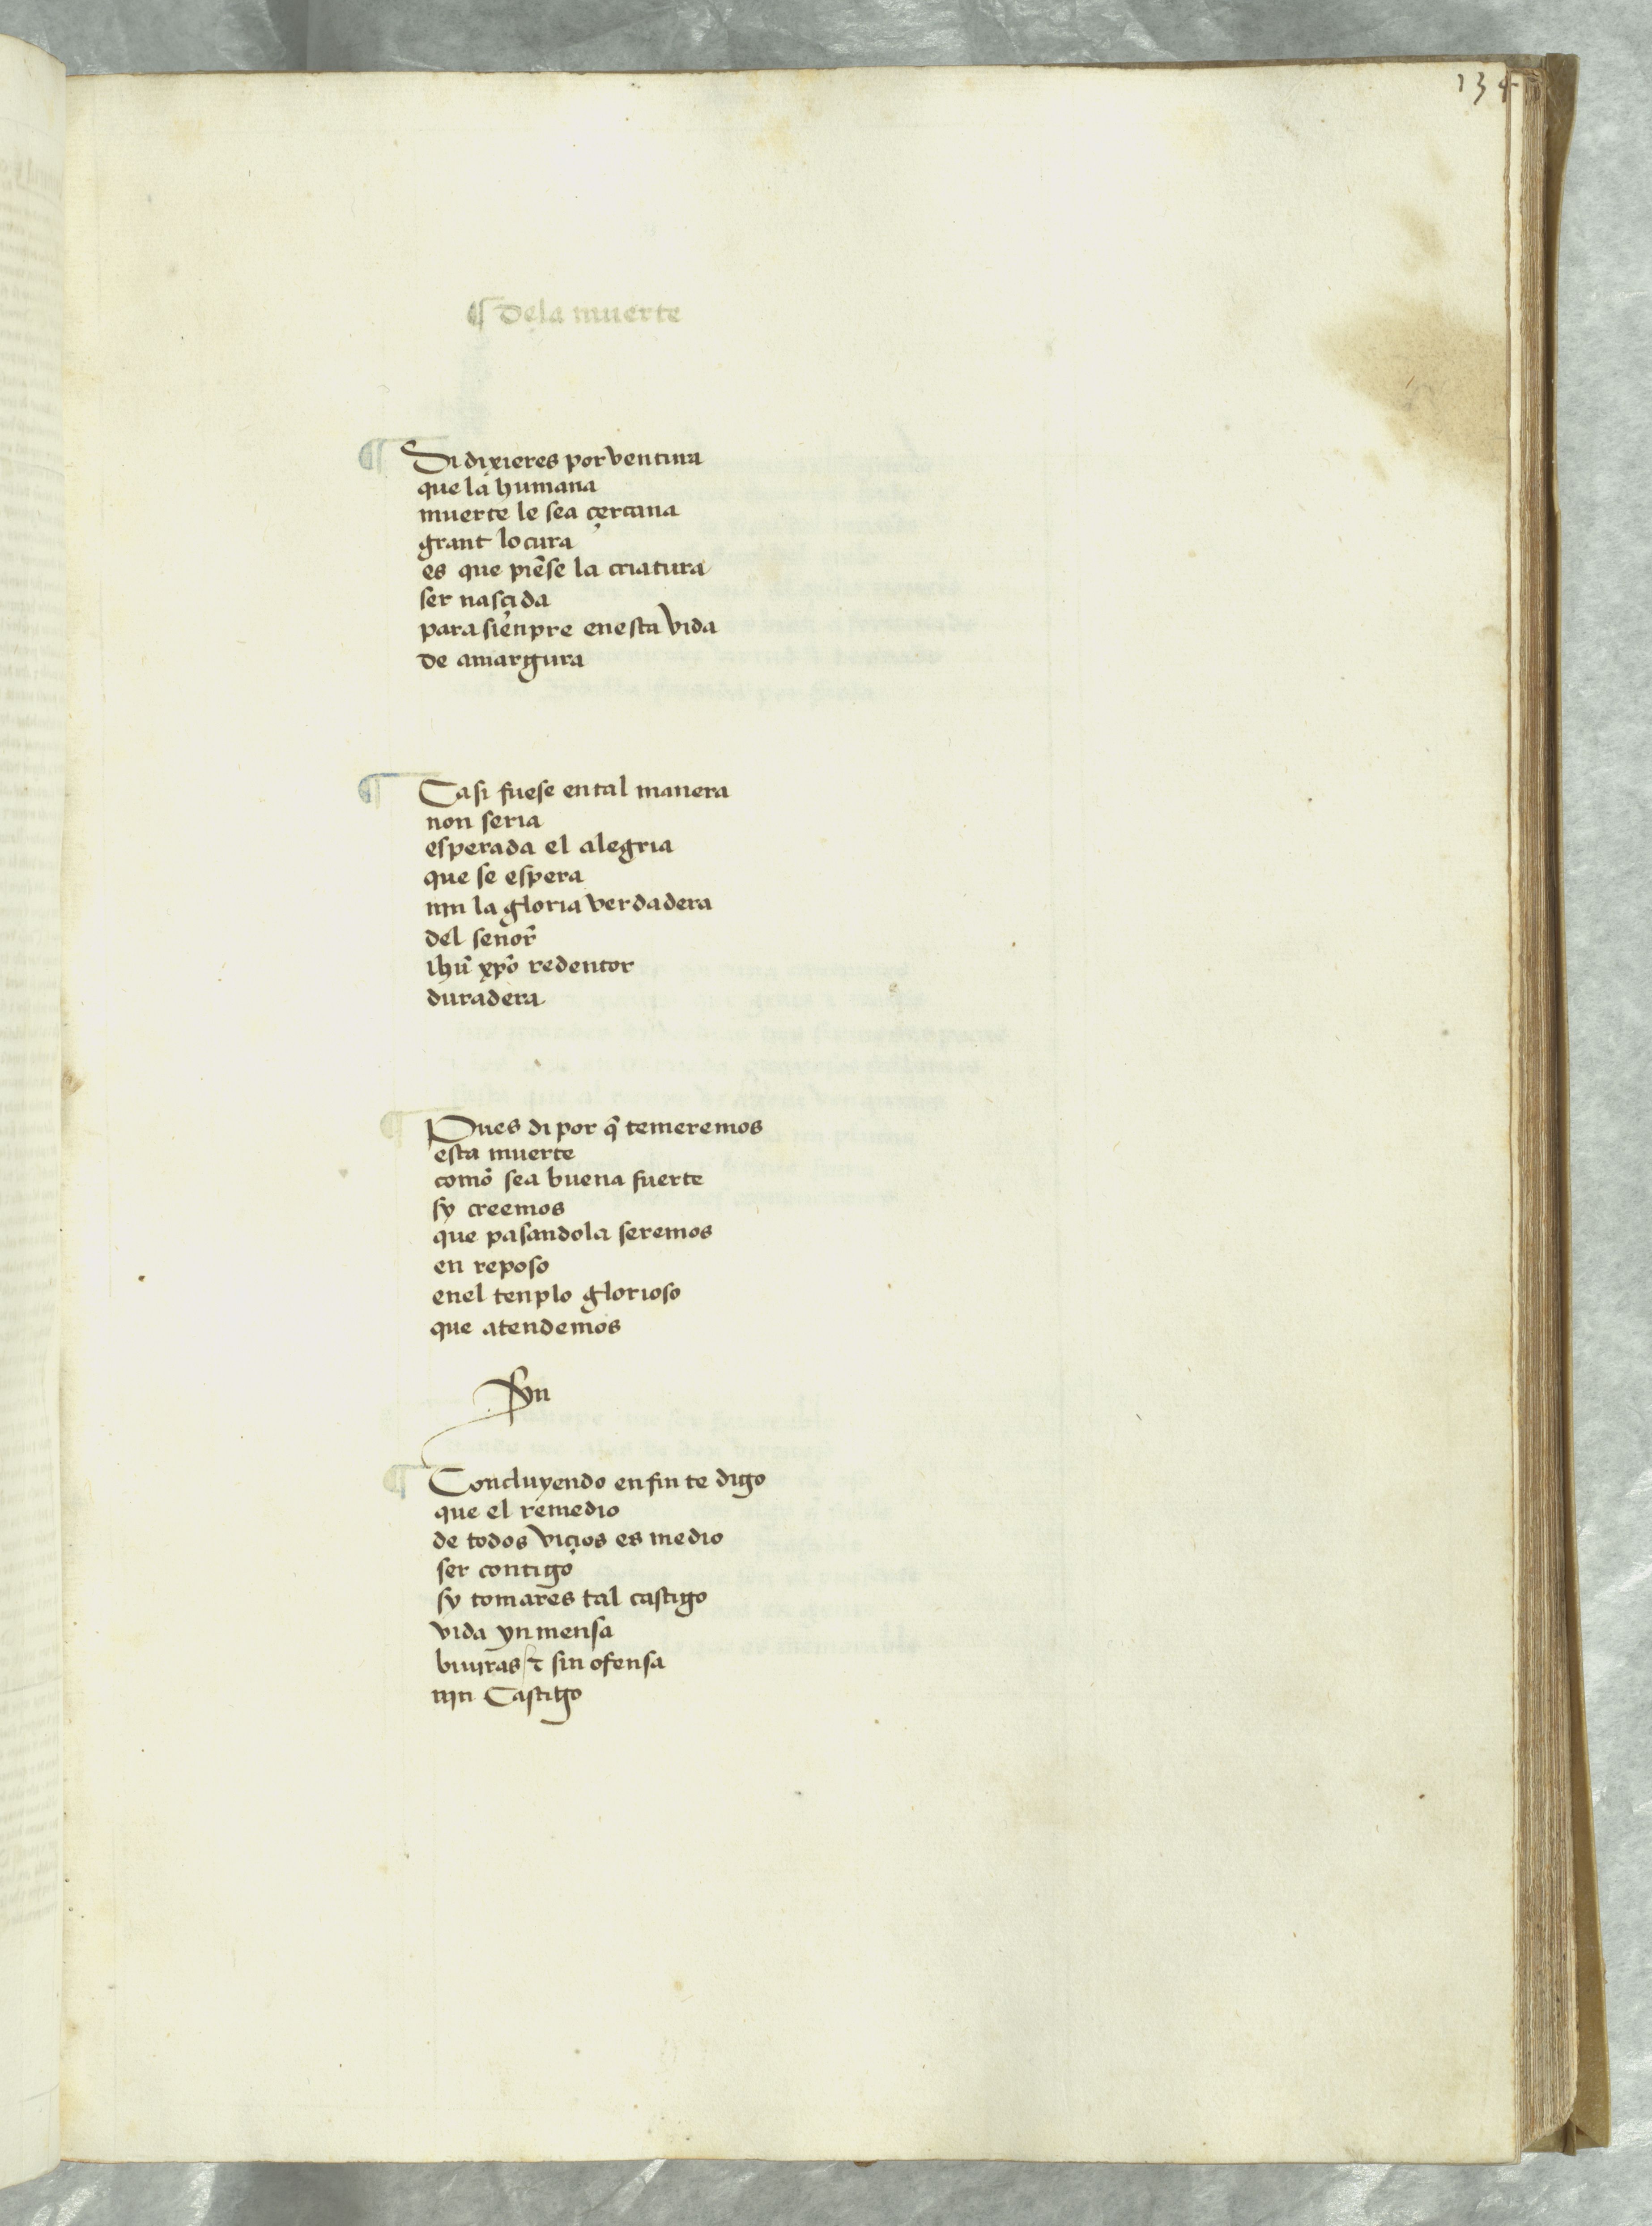 134
¶ De la muerte
¶ Si dixieres por ventura
que la humana
muerte le sea çercana
grant locura
es que piẽse la criatura
ser nasçida
para sienpre en esta vida
de amargura
¶ Ca si fuese en tal manera
non seria
esperada el alegria
que se espera
nin la gloria verdadera
del señor
ihũ xp̃o redentor
duradera
¶ Pues di por q̃ temeremos
esta muerte
como sea buena suerte
sy creemos
que pasandola seremos
en reposo
enel tenplo glorioso
que atendemos
Fyn
¶ Concluyendo en fin te digo
que el remedio
de todos viçios es medio
ser contigo
sy tomares tal castigo
vida ynmensa
biuiras / τ sin ofensa
nin Castigo